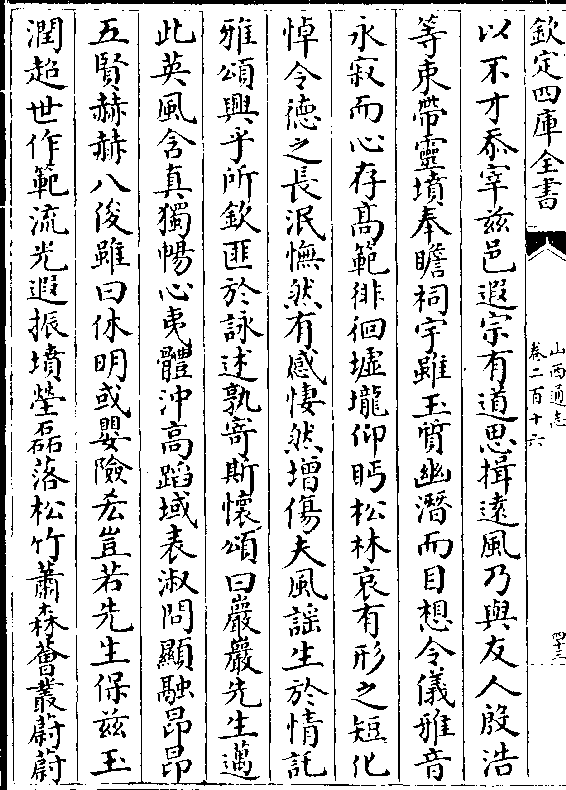 欽定四庫全書
山西通志
卷二百十六
四十三
以不才忝宰兹邑遐宗有道思揖遠風乃與友人殷浩
等束帶靈墳奉瞻祠宇雖玉質幽潛而目想令儀雅音
永寂而心存髙範徘徊墟壠仰眄松林哀有形之短化
悼令徳之長泯憮然有感悽然增傷夫風謡生於情託
雅頌興乎所欽匪於詠述孰寄斯懐頌曰巖巖先生邁
此英風含真獨暢心夷體沖高蹈域表淑問顯融昂昂
五賢赫赫八俊雖曰休明或嬰險吝豈若先生保兹玉
潤超世作範流光遐振墳塋磊落松竹蕭森薈叢蔚蔚